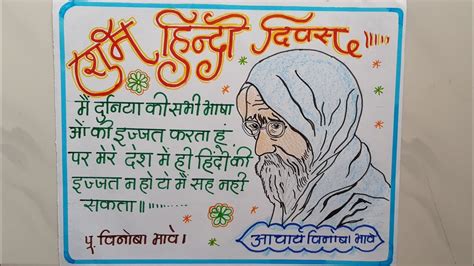 शुभ हिन्दी दिवस
मैं दुनिया की सभी भाषा
ओं की इज्जत करता हूं
पर मेरे देश में ही हिंदी की
इज्जत न हो टो मैं सह नही
सकता॥
पू. विनोबा भावे।
आचार्य विनोबा भावे